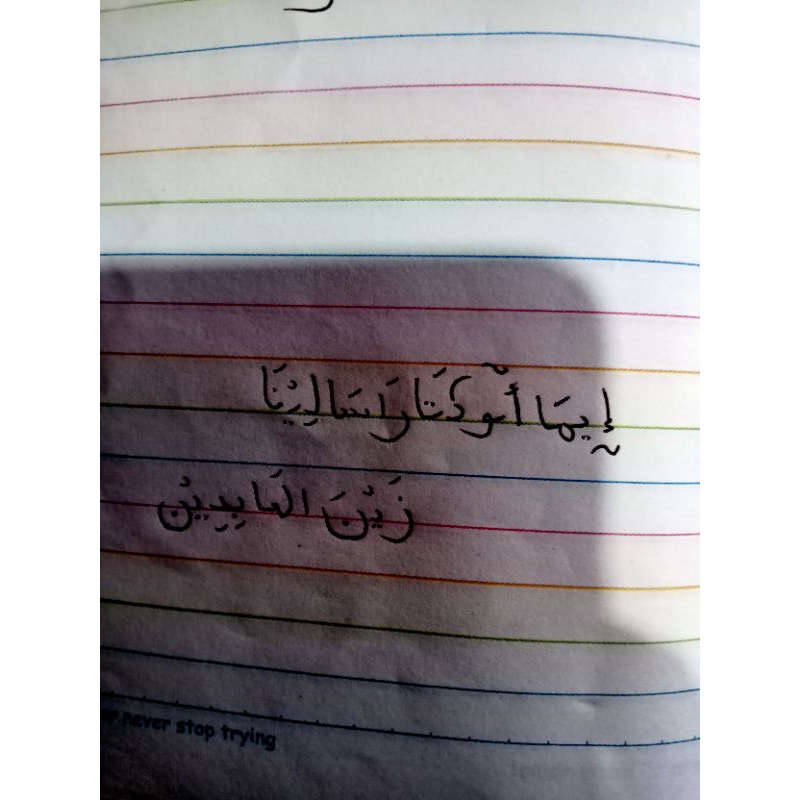 إِيمَا أَوكْتَارَاسَالِيْنَا
زَيْنَ العَابِدِيْن
never stop trying